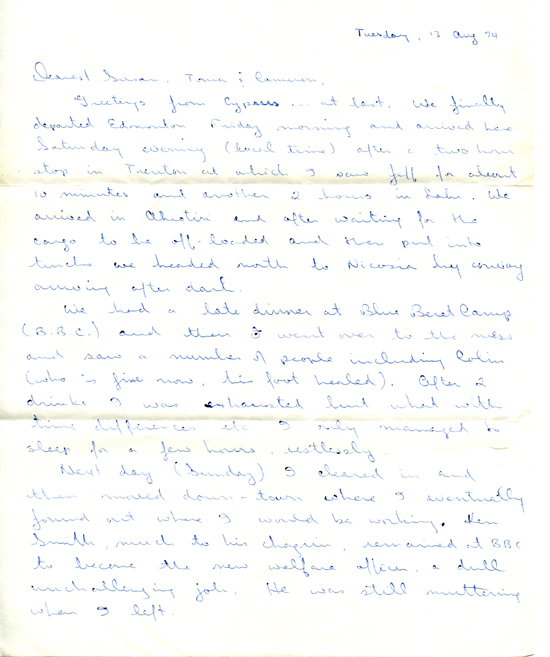 Tuesday, 13 Aug 74
Dearest Susan, Toma & Cameron,
Greetings from Cyprus ... at last. We finally
departed Edmonton Friday morning and arrived here
Saturday evening (local time) after a two hour
stop in Trenton at which I saw Jeff for about
10 minutes and another 2 hours in Lahr. We
arrived in Akrotiri and after waiting for the
cargo to be off-loaded and then put into
trucks we headed north to Nicosia by convoy
arriving after dark.
We had a late dinner at Blue Beret Camp
(B.B.C.) and then I went over to the mess
and saw a number of people including Colin
(who is fine now, his foot healed). After 2
drinks I was exhausted but what with
time differences etc I only managed to
sleep for a few hours, restlessly.
Next day (Sunday) I cleared in and
then moved down-town where I eventually
found out where I would be working. Ken
Smith, much to his chagrin, remained at BBC
to become the new welfare officer, a dull
unchallenging job. He was still muttering
when I left.